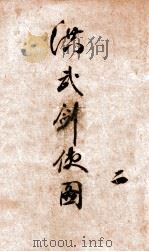 漢武劍俠圖
二
mtoou.info